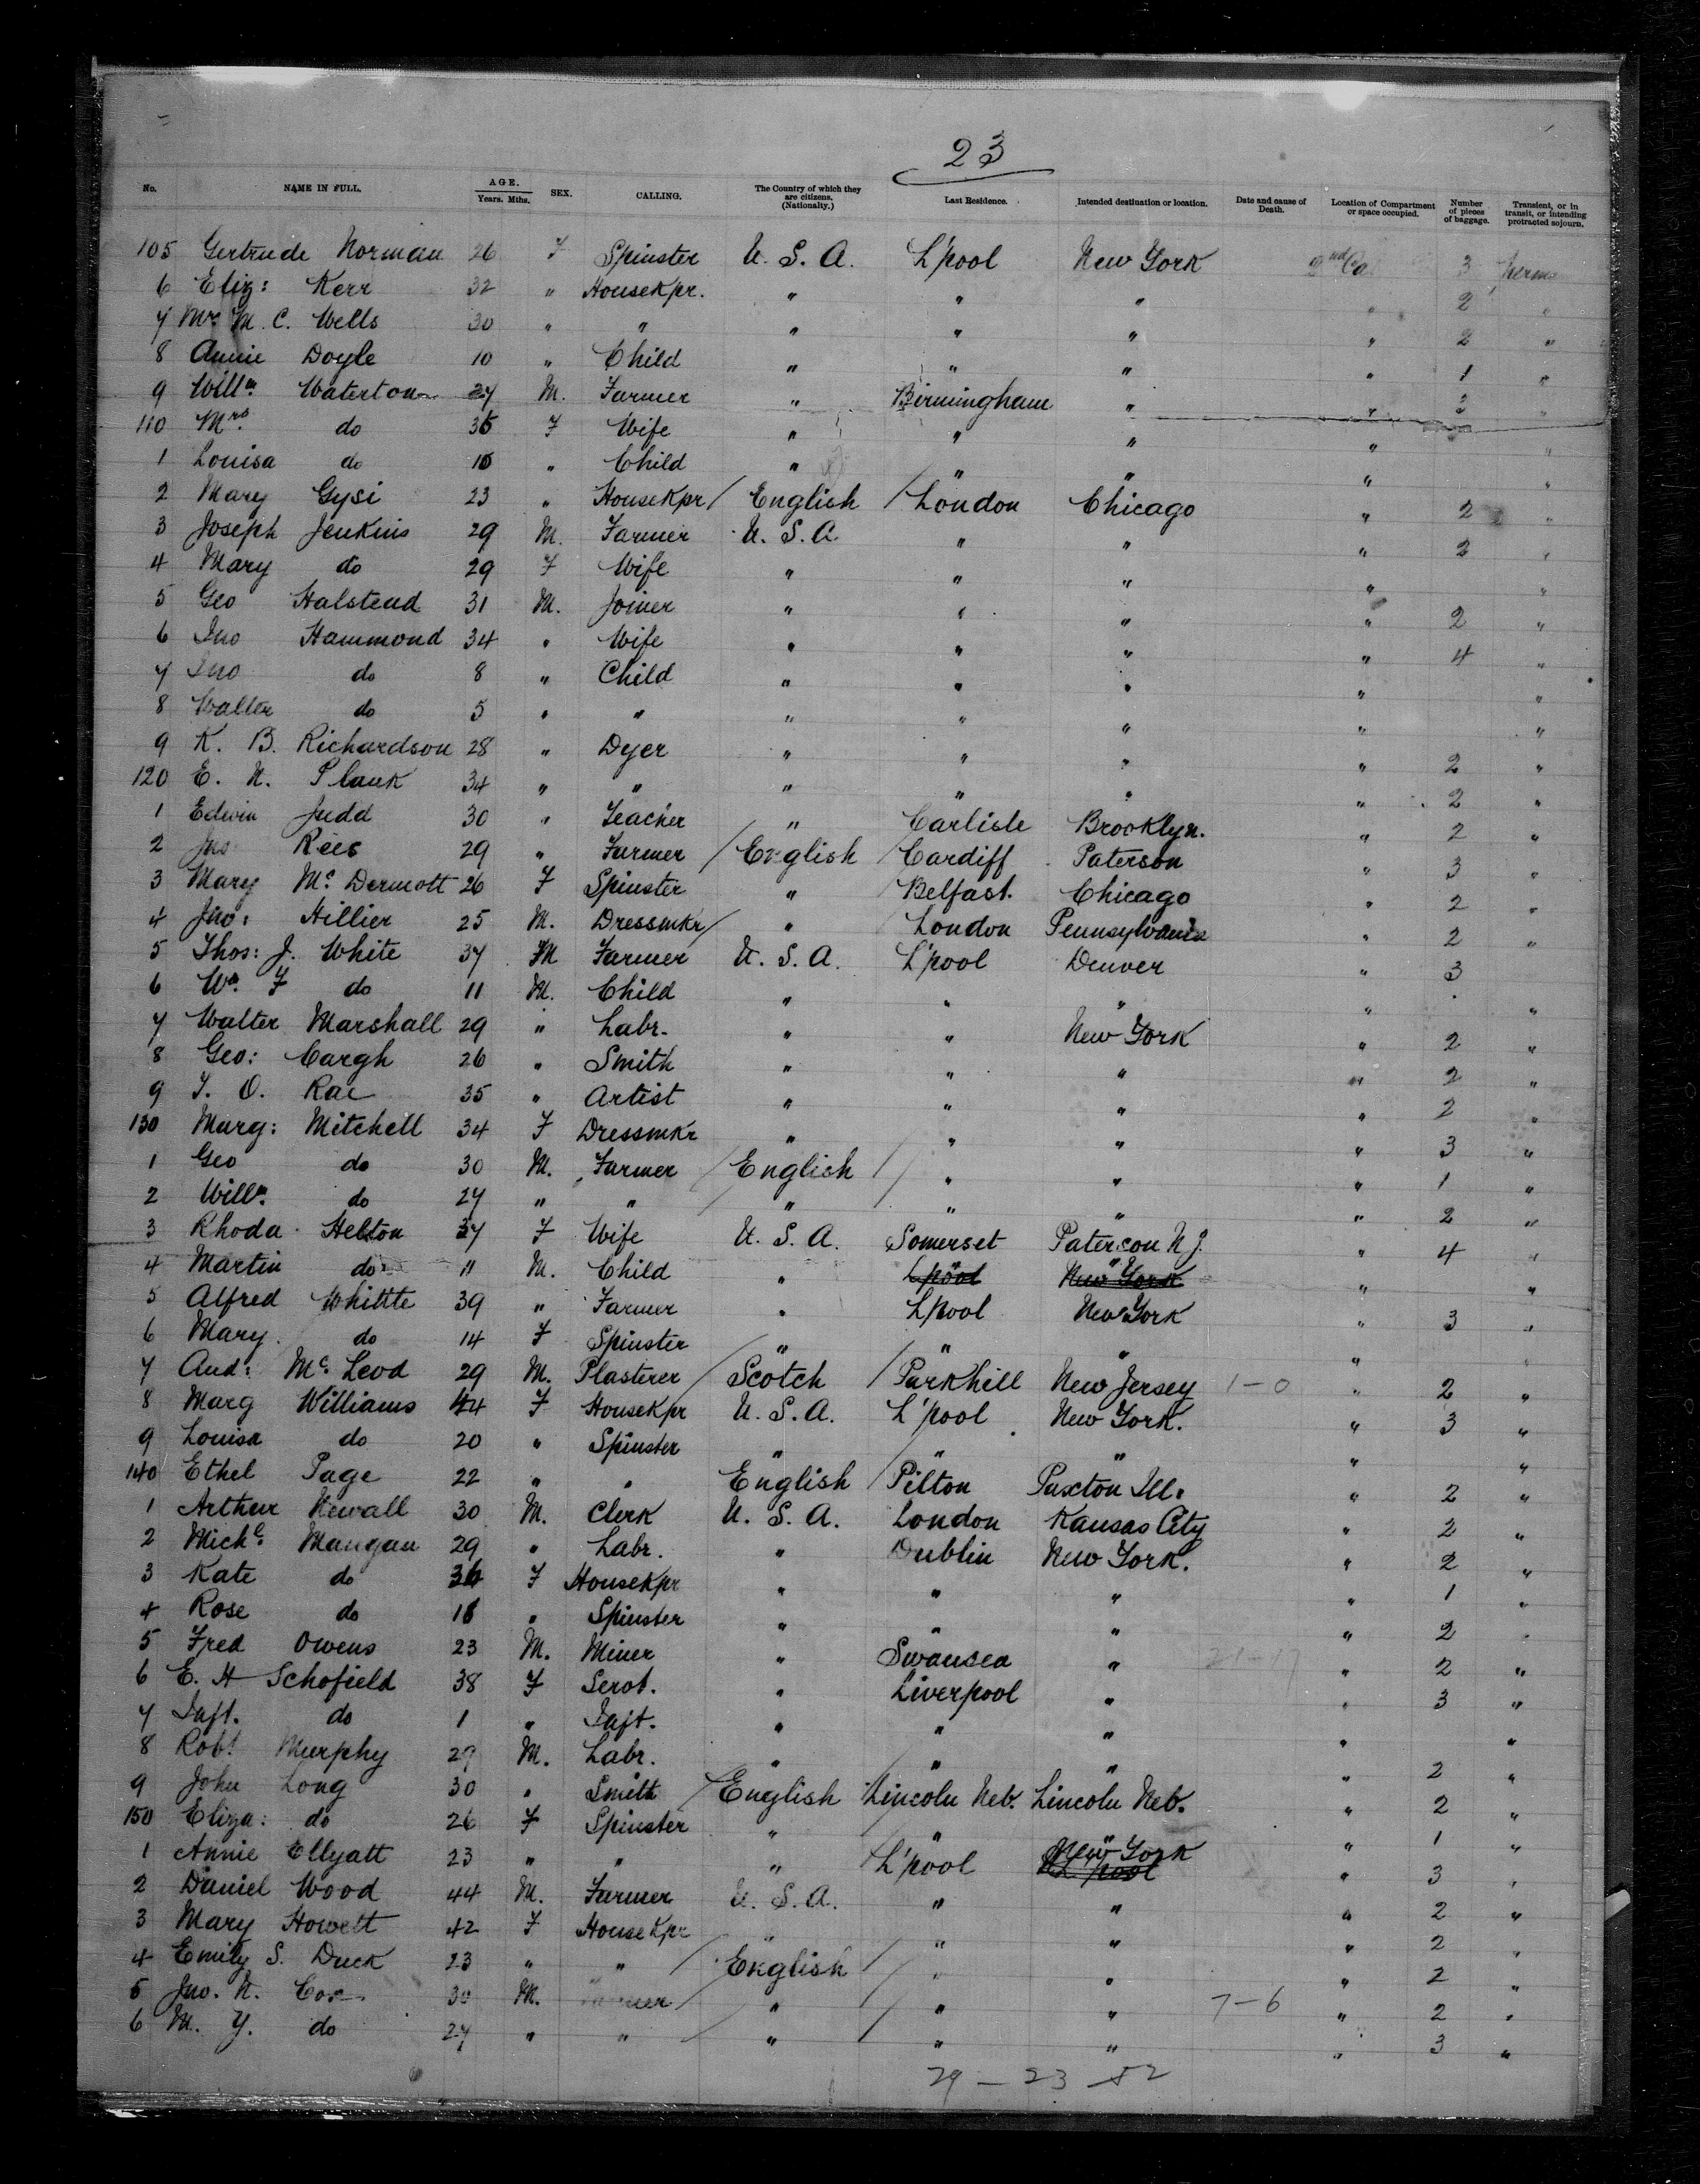 23
No. NAME IN FULL. AGE. Years. Mths. SEX. CALLING. The Country of which they are citizens. (Nationalty.) Last Residence. Intended destination or location. Date and cause of Death. Location of Compartment or space occupied. Number of pieces of baggage. Transient, or in transit, or intending protracted sojourn.
105 Gertrude Norman 26 F Spinster U. S. A. L'pool New York 2nd Ca 3
6 Eliz: Kerr 32 " Housekpr. " " " " 2 "
7 Mrs M. C. Wells 30 " " " " " " 2 "
8 Annie Doyle 10 " Child " " " " 1 "
9 Willm Waterton 27 M. Farmer " Birmingham " " "
110 Mrs do 35 F Wife " " " " "
1 Louisa do 10 " Child " " " " "
2 Mary Gysi 23 " Housekpr / English / London Chicago " 2 "
3 Joseph Jenkins 29 M. Farmer U. S. A. " " " 2 "
4 Mary do 29 F Wife " " " " "
5 Geo Halstead 31 M. Joiner " " " " 2 "
6 Jno Hammond 34 " Wife " " " " 4 "
7 Jno do 8 " Child " " " " "
8 Walter do 5 " " " " " " "
9 K. B. Richardson 28 " Dyer " " " " 2 "
120 E. N. Plank 34 " " " " " " 2 "
1 Edwin Judd 30 " Teacher " Carlisle Brooklyn. " 2 "
2 Jno Rees 29 " Farmer / English / Cardiff Paterson " 3 "
3 Mary McDermott 26 F Spinster " Belfast. Chicago " 2 "
4 Jno: Hillier 25 M. Dressmkr / " London Pennsylvania " 2 "
5 Thos: J. White 37 M Farmer U. S. A. L'pool Denver " 3
6 Wm F do 11 M. Child " " " " "
7 Walter Marshall 29 " Labr. " " New York " 2 "
8 Geo: Cargh 26 " Smith " " " " 2 "
9 T. O. Rae 35 " Artist " " " " 2 "
130 Marg: Mitchell 34 F Dressmkr " " " " 3 "
1 Geo do 30 M. Farmer / English / " " " 1 "
2 Willm. do 27 " " / " " " " 2 "
3 Rhoda Helton 37 F Wife U. S. A. Somerset Paterson N J. " 4 "
4 Martin do 11 M. Child " L'pool New York " "
5 Alfred Whittte 39 " Farmer " L'pool New York " 3 "
6 Mary. do 14 F Spinster " " " " "
7 And: McLeod 29 M. Plasterer / Scotch / Parkhill New Jersey 1-0 " 2 "
8 Marg Williams 44 F Housekpr U. S. A. L'pool New York. " 3 "
9 Louisa do 20 " Spinster " " " " "
140 Ethel Page 22 " " English / Pilton Paxton Ill. " 2 "
1 Arthur Newall 30 M. Clerk U. S. A. London Kansas City " 2 "
2 Michl: Mangan 29 " Labr. " Dublin New York. " 2 "
3 Kate do 36 F Housekpr " " " " 1 "
4 Rose do 18 " Spinster " " " " 2 "
5 Fred Owens 23 M. Miner " Swansea " 21-17 " 2 "
6 E. H Schofield 38 F Servt. " Liverpool " " 3 "
7 Inft. do 1 " Inft. " " " " "
8 Robt Murphy 29 M. Labr. " " " " 2 "
9 John Long 30 " Smith / English Lincoln Neb. Lincoln Neb. " 2 "
150 Eliza: do 26 F Spinster " " " " 1 "
1 Annie Ellyatt 23 " " " L'pool L'pool New York " 3 "
2 Daniel Wood 44 M. Farmer U. S. A. " " " 2 "
3 Mary Howett 42 F Housekpr " " " " 2 "
4 Emily S. Duck 23 " " / English / " " " 2 "
5 Jno. N. Cox 30 M. / " / " " 7-6 " 2 "
6 M. Y. do 27 " " / " " " " 3 "
29 - 23 - 52